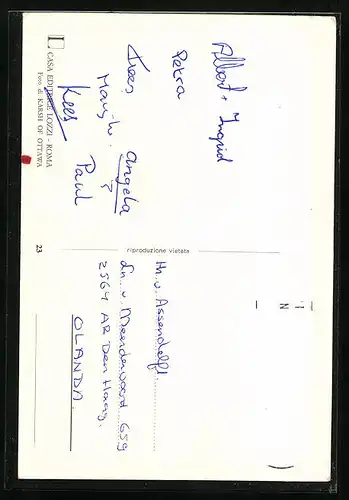 Albert + Ingrid
Petra
Trees
Mary-Lo.
Angela
?
Kees
Paul
CASA EDITRICE LOZZI - ROMA
Foto di KARSH OF OTTAWA
23
riproduzione vietata
Hr. v. Assendelft.
Ln. v. Meerdervoort 659
2564 AR Den Haag.
OLANDA.